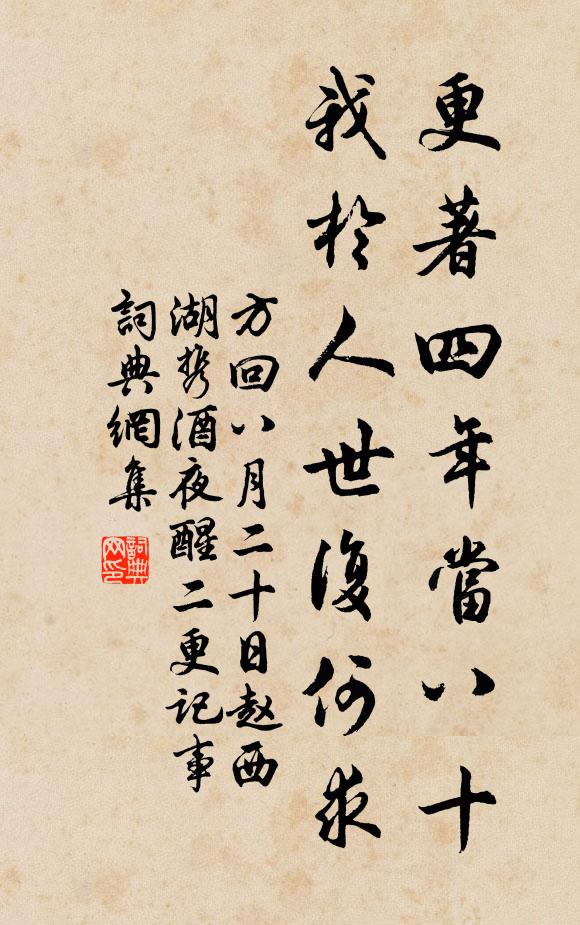 更著四年當八十
我於人世復何求
方回八月二十日赵西
湖携酒夜醒二更记事
詞典網集
詞典网印